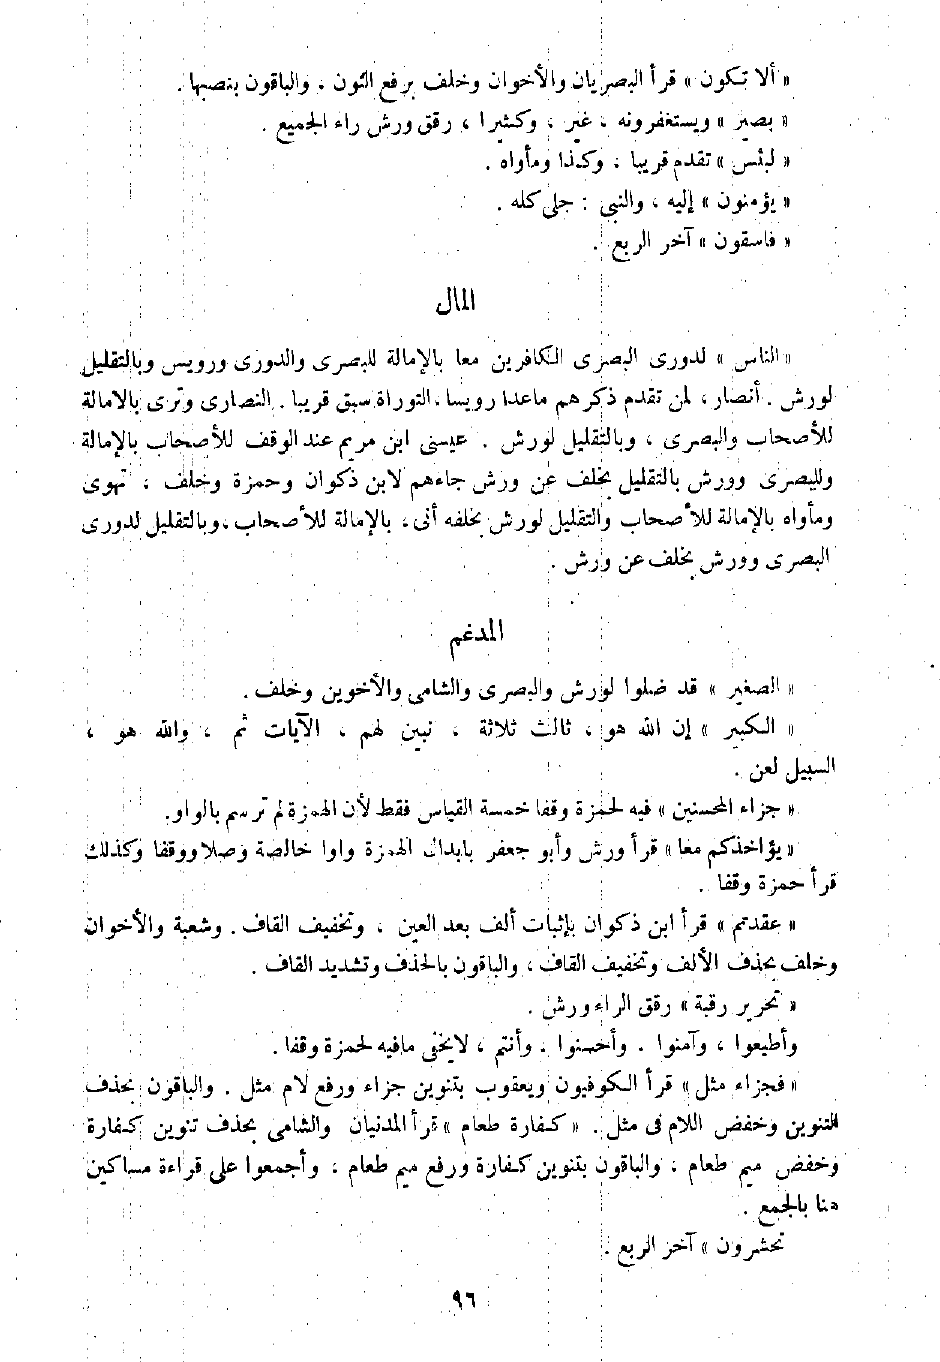 « ألا تكون » قرأ البصريان والأخوان وخلف برفع النون ، والباقون بنصبها .
« بصير » ويستغفرونه ، غير ، وكثيرا ، رقق ورش راء الجميع .
« لبئس » تقدم قريبا ، وكذا ومأواه .
« يؤمنون » إليه ، والنبي : جلى كله .
« فاسقون » آخر الربع .
الممال
« الناس » لدورى البصرى الكافرين معا بالإمالة للبصرى والدورى ورويس وبالتقليل
لورش . أنصار ، لمن تقدم ذكرهم ماعدا رويسا ، التوراة سبق قريبا . النصارى وترى بالامالة
للأصحاب والبصرى ، وبالتقليل لورش . عيسى ابن مريم عند الوقف للأصحاب بالإمالة
وللبصرى وورش بالتقليل بخلف عن ورش جاءهم لابن ذكوان وحمزة وخلف ، تهوى
ومأواه بالإمالة للأصحاب والتقليل لورش بخلفه أنى ، بالإمالة للأصحاب ، وبالتقليل لدورى
البصرى وورش بخلف عن ورش .
المدغم
« الصغير » قد ضلوا لورش والبصرى والشامى والأخوين وخلف .
« الكبير » إن الله هو ، ثالث ثلاثة ، نبين لهم ، الآيات ثم ، والله هو ،
السبيل لعن .
« جزاء المحسنين » فيه لحمزة وقفا خمسة القياس فقط لأن الهمزة لم ترسم بالواو .
« يؤاخذكم معا » قرأ ورش وأبو جعفر بابدال الهمزة واوا خالصة وصلا ووقفا وكذلك
قرأ حمزة وقفا .
« عقدتم » قرأ ابن ذكوان بإثبات ألف بعد العين ، وتخفيف القاف . وشعبة والأخوان
وخلف بحذف الألف وتخفيف القاف ، والباقون بالحذف وتشديد القاف .
« تحرير رقبة » رقق الراء ورش .
وأطيعوا ، وآمنوا . وأحسنوا . وأنتم ، لايخفى مافيه لحمزة وقفا .
« فجزاء مثل » قرأ الكوفيون ويعقوب بتنوين جزاء ورفع لام مثل . والباقون بحذف
التنوين وخفض اللام فى مثل . « كفارة طعام » قرأ المدنيان والشامى بحذف تنوين كفارة
وخفض ميم طعام ، والباقون بتنوين كفارة ورفع ميم طعام ، وأجمعوا على قراءة مساكين
هنا بالجمع .
تحشرون » آخر الربع .
٩٦